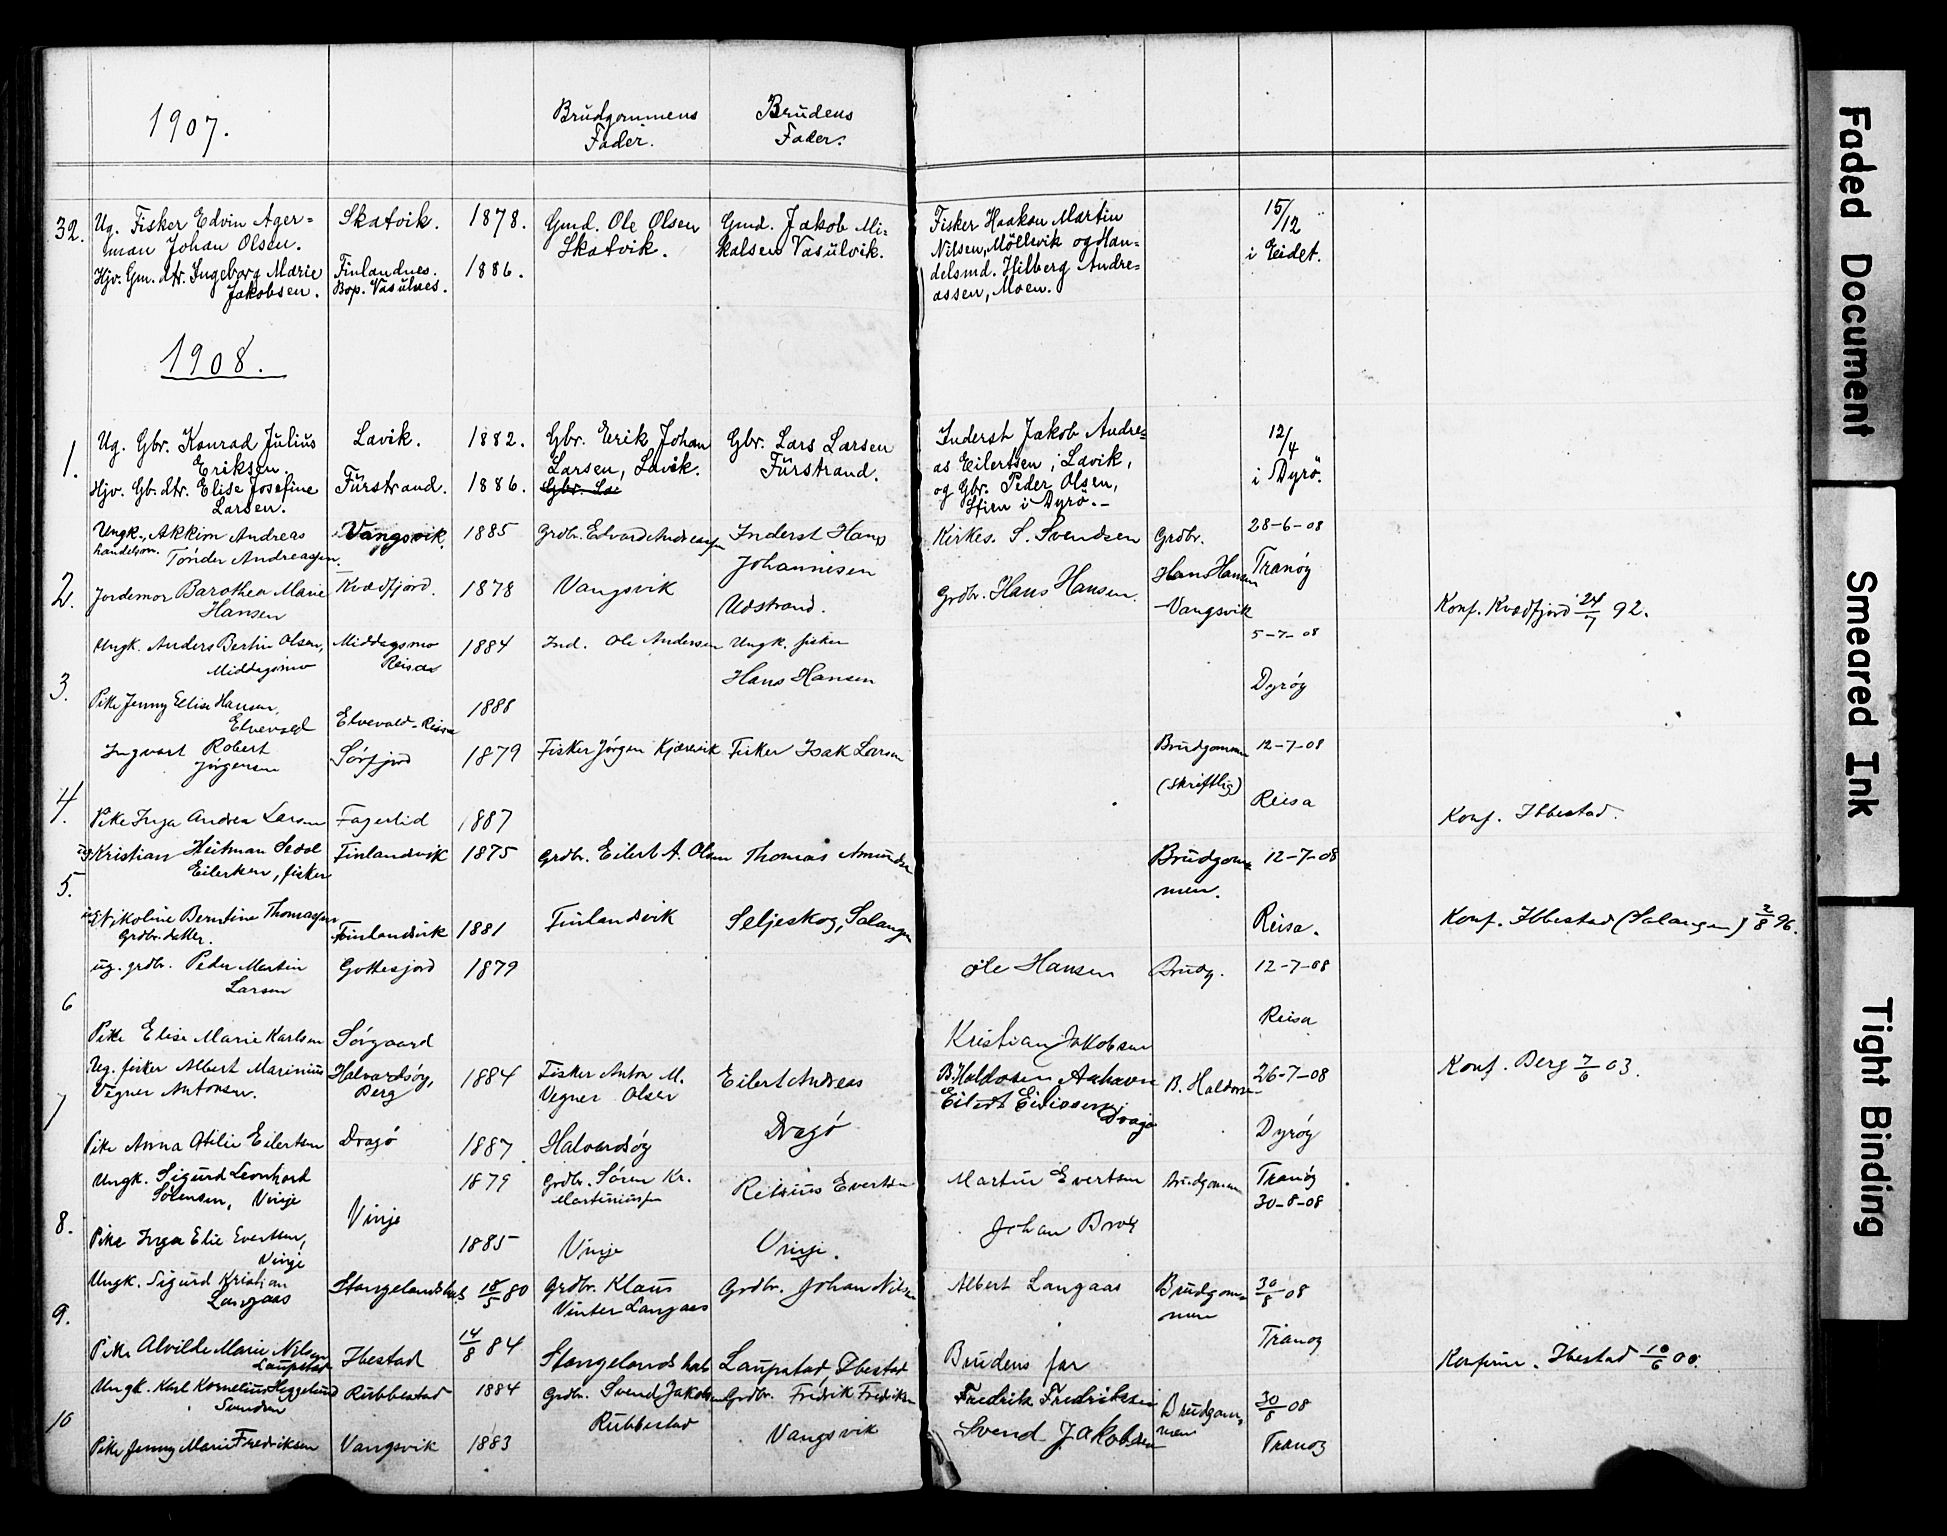 1907.
Brudgommens
Fader.
Brudens
Fader.
32.
Ug. Fisker Edvin Ager=
man Johan Olsen.
Hjv. Gm. dtr. Ingeborg Marie
Jakobsen.
Skatvik.
Finlandnes.
Bop. Vasulnes.
1878.
1886.
Gmd. Ole Olsen
Skatvik.
Gmd. Jakob Mi-
kalsen Vasulvik.
Fisker Haakon Martin
Nilsen, Möllevik og Han=
delsmd. Hilberg Andre=
assen, Moen.
15/12
i Eidet.
1908.
1.
Ug. Gbr. Konrad Julius
Eriksen.
Hjv. Gb. dtr. Elise Josefine
Larsen.
Lavik.
Fürstrand.
1882.
1886.
Gbr. Erik Johan
Larsen, Lavik.
Gbr. Lars Larsen
Fürstrand.
Inderst Jakob Andre=
as Eilertsen, Lavik,
og Gbr. Peder Olsen,
i Dyrö.-
12/4
i Dyrö.
2.
Ungk. Akkim Andreas
handelsm. Tønder Andreassen.
Jordemor Barothea Marie
Hansen
Vangsvik.
Kvædfjord.
1885
1878
Grdbr. Edvard Andreassen
Vangsvik
Inderst Hans
Johannesen
Udstrand.
Kirkes. S. Svendsen
Grdbr. Hans Hansen.
Grdbr.
Hans Hansen
Vangsvik
28-6-08
Tranøy
Konf. Kvædfjord 24/7 92.
3.
Ungk. Anders Bertin Olsen,
Middagsmo
Pike Jenny Elise Hansen,
Elvevold
Middagsmo
Reisa
Elvevold-Reisa
1884
1888
Ind. Ole Andersen
Ungk. fisker
Hans Hansen
5-7-08
Dyrøy
4.
Ingvart Robert
Jørgensen
Pike Inga Andrea Larsen
Sørfjord
Fagerlid
1879
1887
Fisker Jørgen Kjærvik
Fisker Isak Larsen
Brudgommen
(skriftlig)
12-7-08
Reisa
Konf. Ibbestad.
5.
Kristian Heitman
Eilertsen, fisker
Nikoline Berntine Thomassen
Grdbr. datter.
Finlandsvik
Finlandsvik
1875
1881
Grdbr. Eilert A. Olsen
Finlandsvik
Thomas Amundsen
Seljeskog, Salangen
Brudgom=
men.
12-7-08
Reisa.
Konf. Ibbestad (Salangen) 2/8 96.
6
ug. grdbr. Peder Martin
Larsen
Pike Elise Marie Karlsen
Gottesjord
Sørgaard
1879
Ole Hansen
Kristian Jakobsen
Brudg.
12-7-08
Reisa
7
Ug. fisker Albert Marinius
Vegner Antonsen.
Pike Anna Otilie Eilertsen
Halvardsøy,
Berg
Dragö
1884
1887
Fisker Anton M.
Vegner Olsen
Halvardsöy
Eilert Andreas
Dragö
B. Haldosen
Eilert
Dragö
B. Haldosen
26-7-08
Dyrøy
Konf. Berg 7/6 03.
8.
Ungk. Sigurd Leonhard
Sørensen, Vinje
Pike Inga Elie Evertsen,
Vinje
Vinje
1879
1885
Grdbr. Søren Kr.
Martiniussen
Vinje
Evertsen
Vinje.
Martin Evertsen
Johan
Brudgommen
Tranöy
30-8-08
9.
Ungk. Sigurd Kristian
Langaas
Pike Alvilde Marie Nilsen
Laupstad
Stangelandshals
Ibestad
18/5 80
14/8 84
Grdbr. Klaus
Vinter Langaas
Stangelandshals
Grdbr. Johan Nilsen
Laupstad Ibestad
Albert Langaas
Brudens far
Brudgom=
men
30/8 08
Tranøy
Konfirm. Ibestad 10/6 00.
10
Ungk. Karl Kornelius Heggelund
Svendsen
Pike Jenny Marie Fredriksen
Rubbestad
Vangsvik
1884
1883
Grdbr. Svend Jakobsen
Rubbestad
Grdbr. Fredrik Fredriksen
Vangsvik
Fredrik Fredriksen
Svend Jakobsen
Brudgom=
men
30/8 08
Tranøy
Faded Document
Smeared Ink
Tight Binding